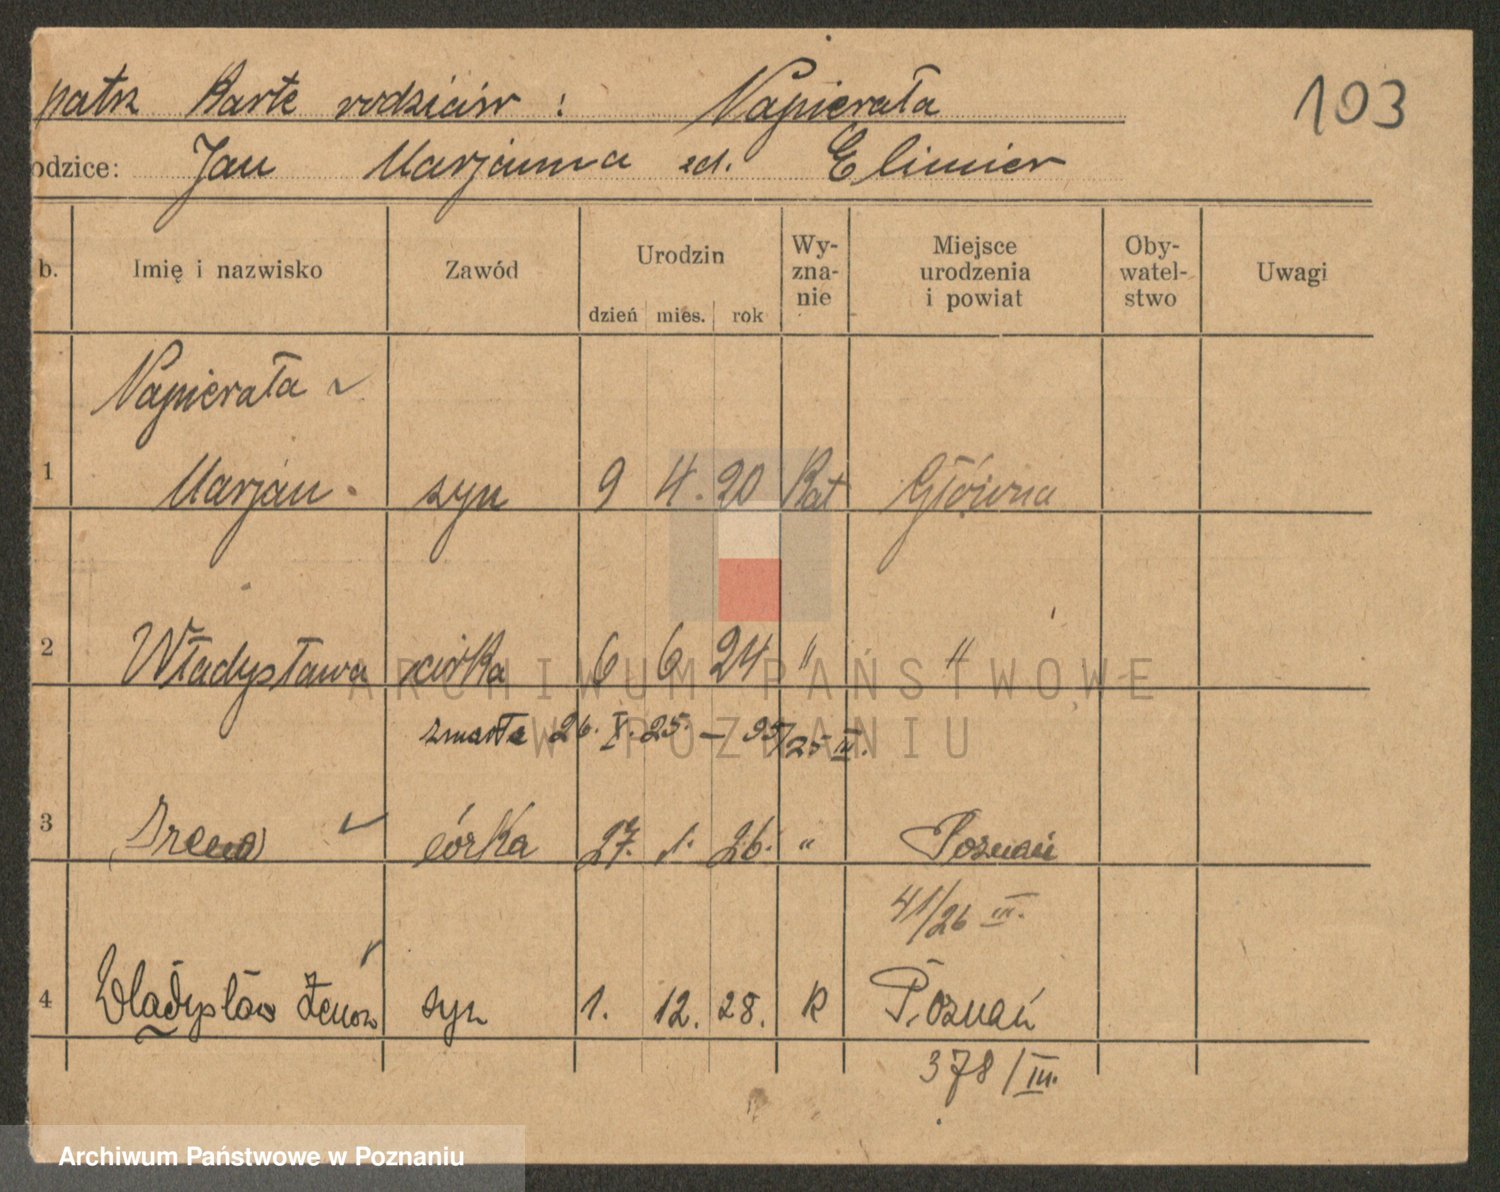 patrz Kartę rodziców : Napierała 103
odzice: Jan Marjanna zd. Elimier
b. Imię i nazwisko Zawód Urodzin dzień mies. rok Wy-zna-nie Miejsce urodzenia i powiat Oby-watel-stwo Uwagi
Napierała
1 Marjan syn 9 4. 20 Kat Główna
2 Władysława córka 6 6 24 " "
zmarła 26. X. 25. – 95/25 III.
3 Irena córka 27. 1. 26. " Poznań
41/26 III.
4 Władysław Zenon syn 1. 12. 28. R Poznań
378/III.
ARCHIWUM PAŃSTWOWE
W POZNANIU
Archiwum Państwowe w Poznaniu